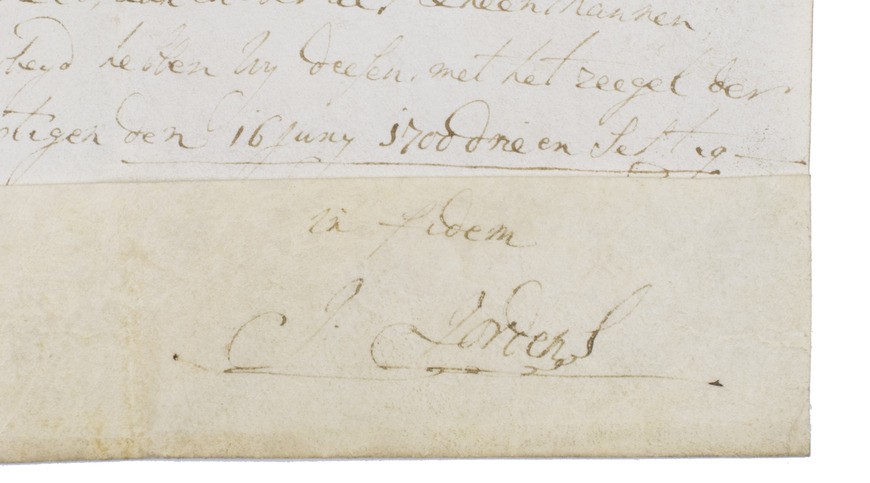 heyd hebben Wy deesen, met het zeegel der
tigen den 16 Juny 1700 drie en Sestig
in fidem
J. Jordens